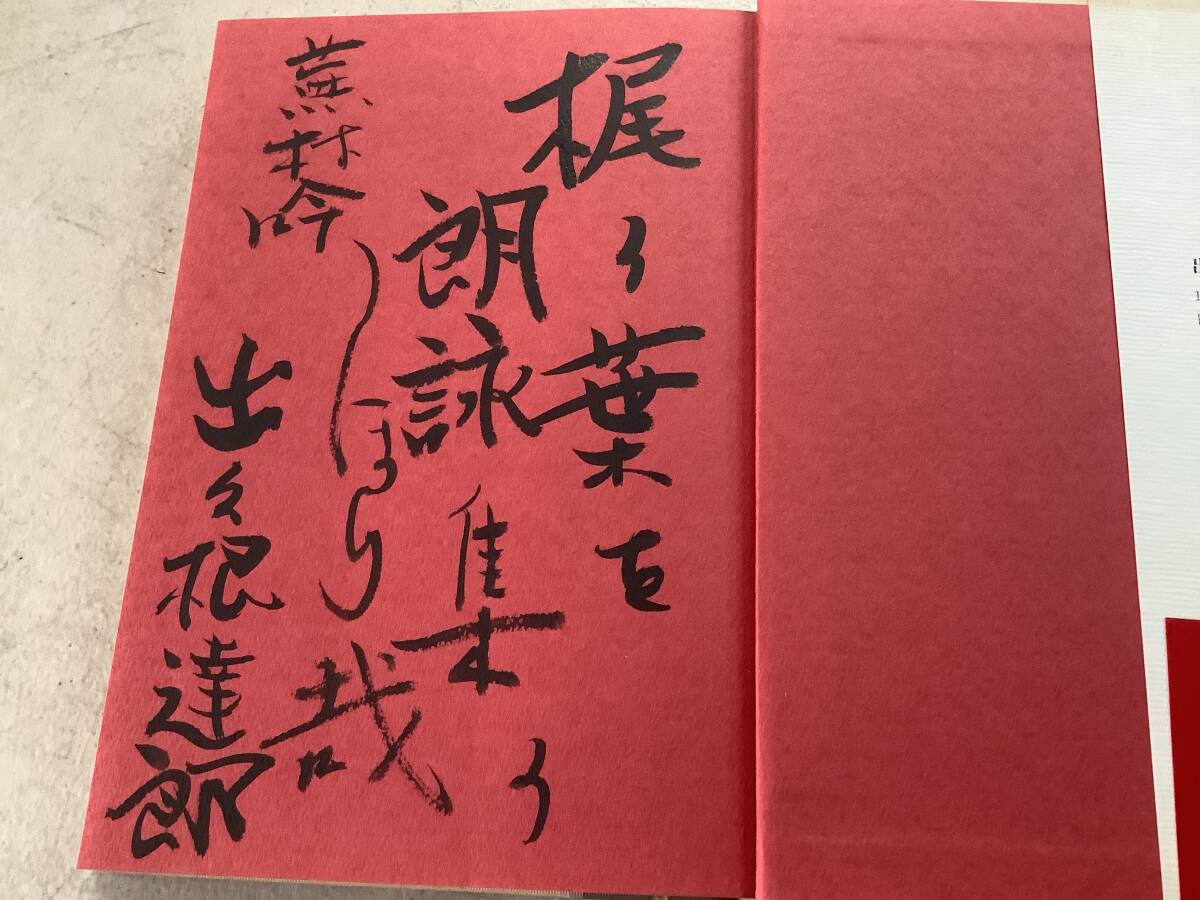 梶の葉を
朗詠集の
しほり哉
蕪村吟
出久根達郎